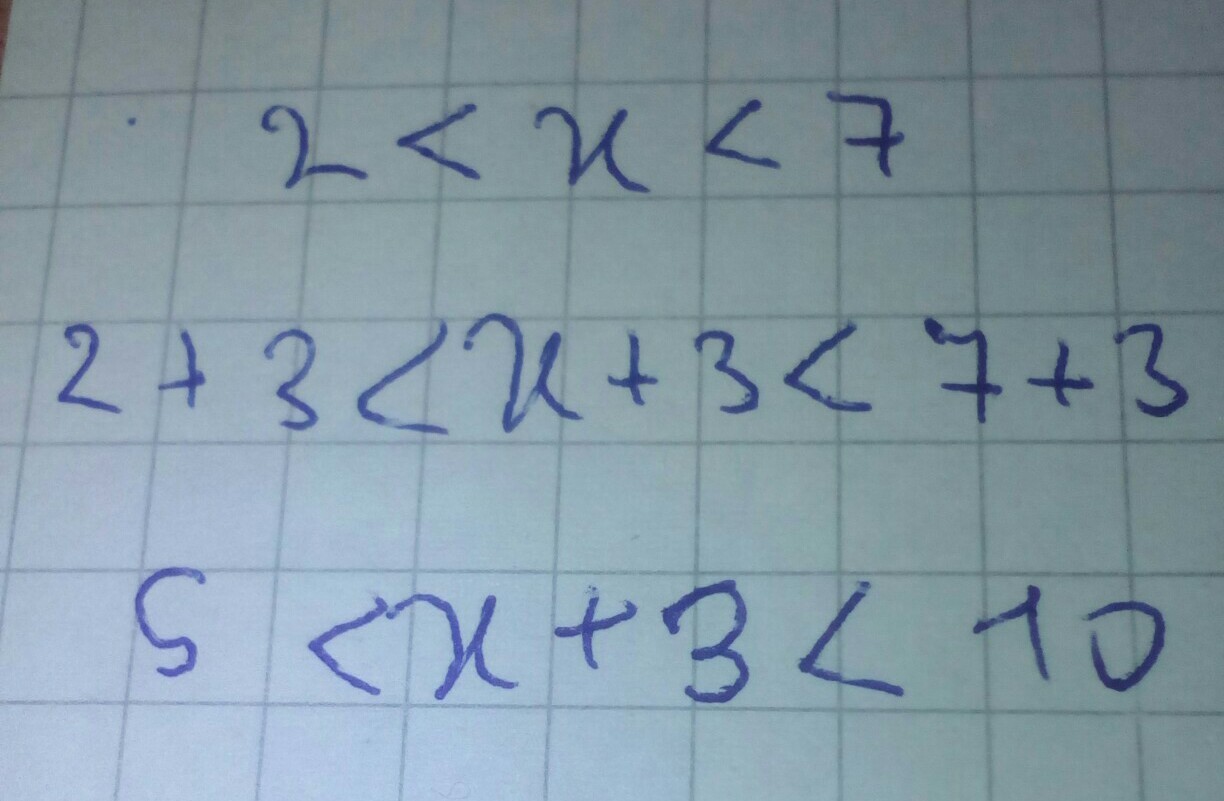 2 < x < 7
2 + 3 < x + 3 < 7 + 3
5 < x + 3 < 10